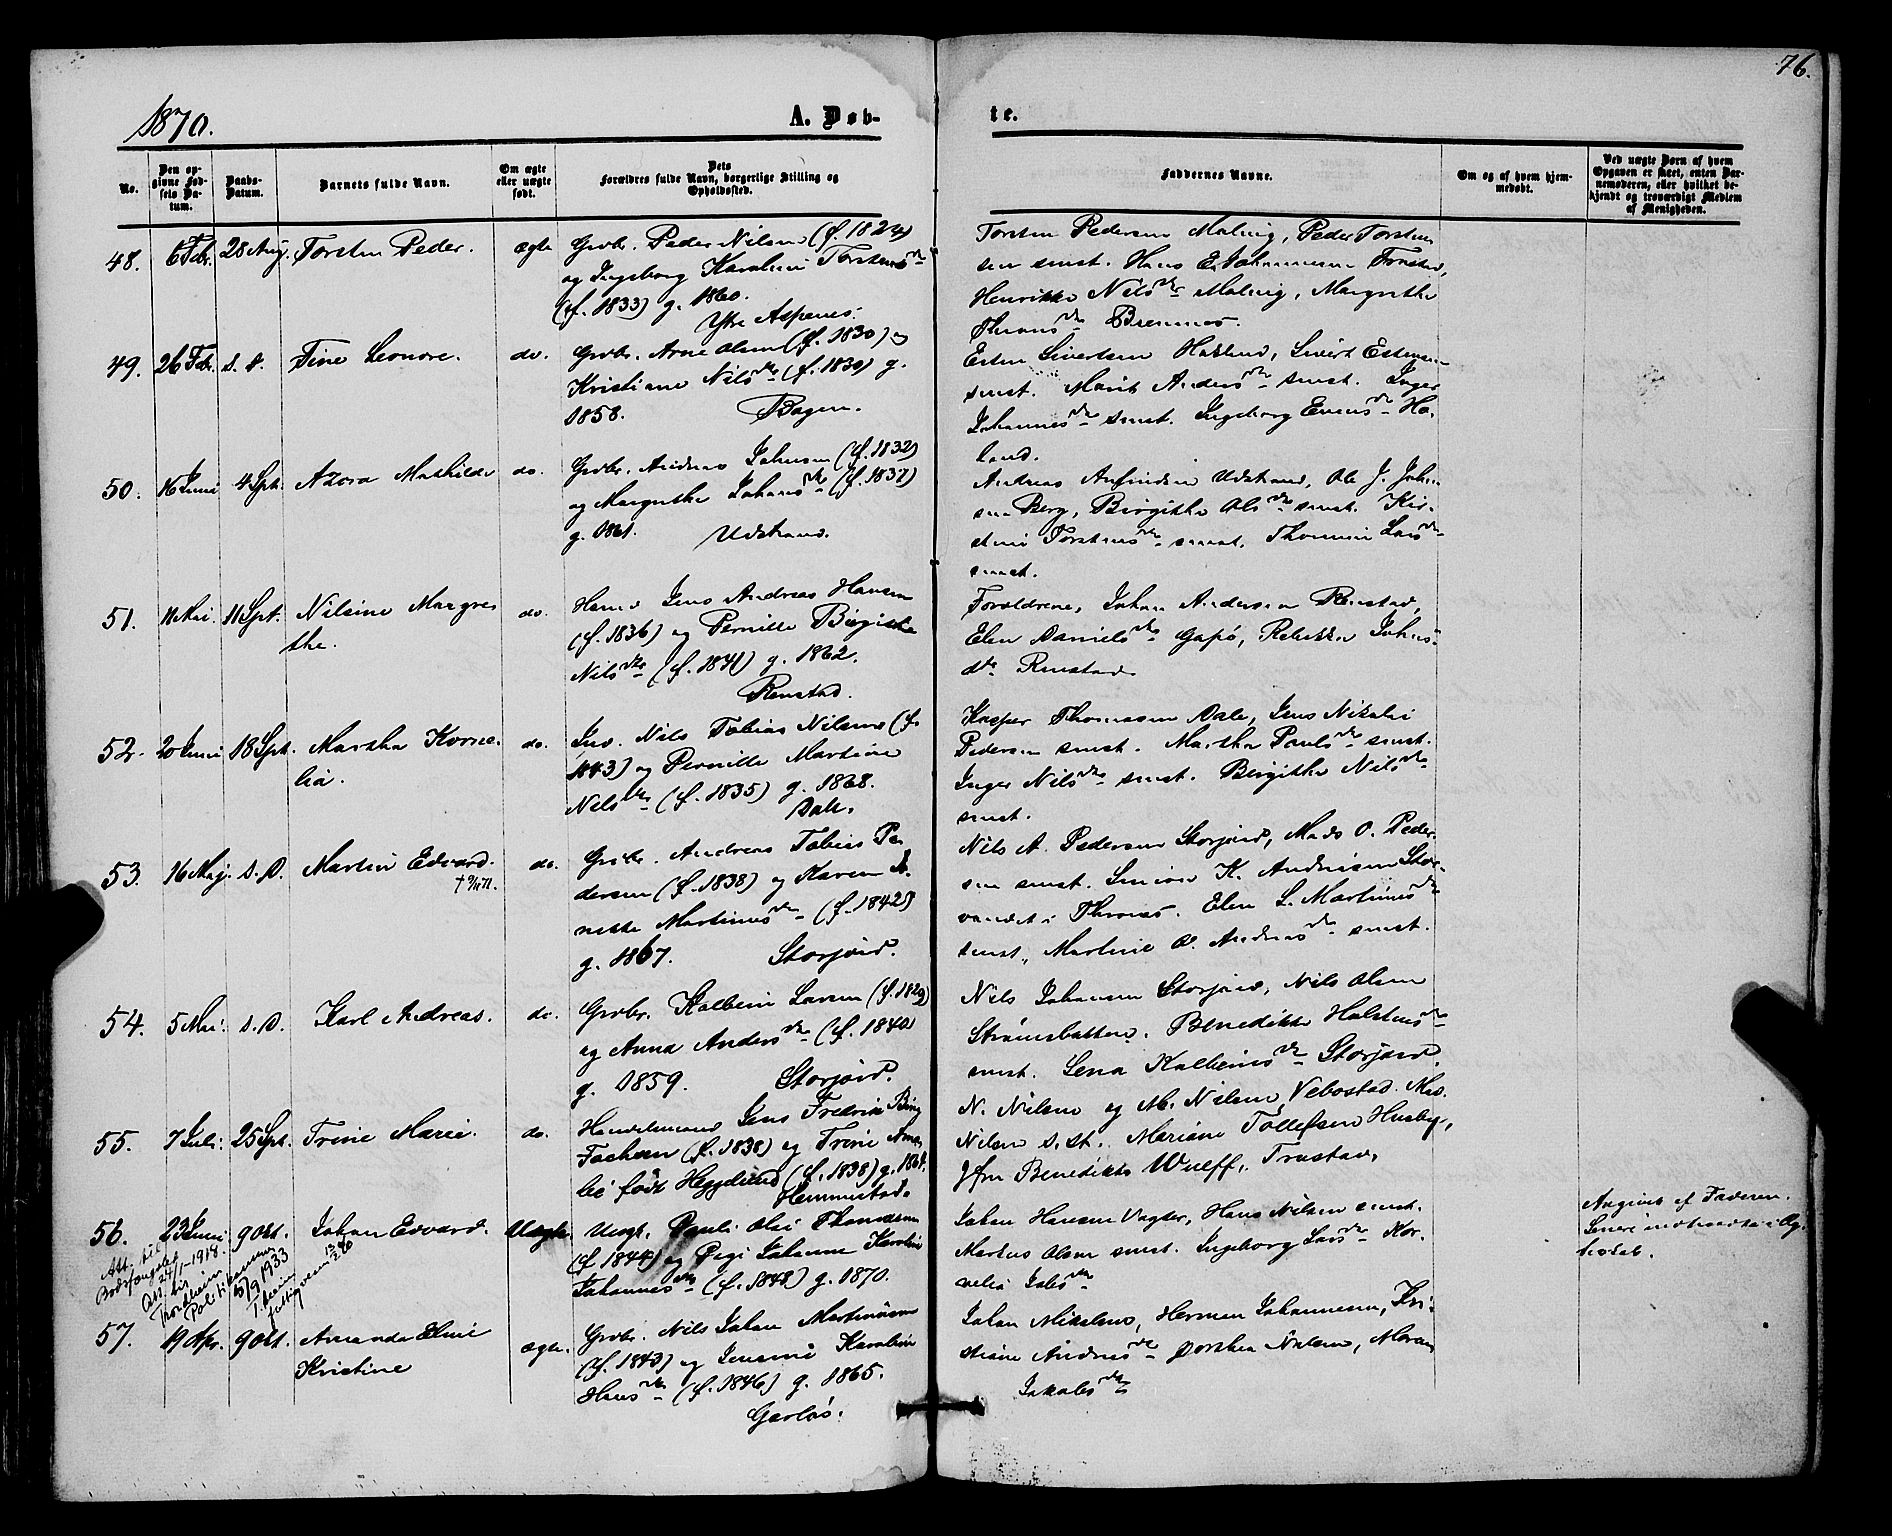 76.
1870.
A. Døb-
te.
No.
Den op-
givne Fød-
sels Da-
tum.
Daabs-
Datum.
Barnets fulde Navn.
Om ægte
eller uægte
født.
Dets
Forældres fulde Navn, borgerlige Stilling og
Opholdssted.
Faddernes Navne.
Om og af hvem hjem-
medøbt.
Ved uægte Børn af hvem
Opgaven er skeet, enten Bar-
nemoderen, eller hvilket be-
kjendt og troværdigt Medlem
af Menigheden.
48. 6 Febr. 28 Aug. Torsten Peder. ægte
Grbr. Peder Nilsen (f. 1824)
og Ingeborg Karoline Torstensdtr
(f. 1833) g. 1860.
Ytre Aspenes.
Torsten Pedersen Molvig, Peder Torsten
sen smst. Hans E. Johannesen Forstad,
Henrikke Nilsdtr Molvig, Margrethe
Thomsdtr Bremnes.
49. 26 Febr. s. d. Tine Leonore. do.
Grbr. Arne Olsen (f. 1830) og
Kristiane Nilsdtr (f. 1830) g.
1858. Bogen.
Esten Sivertsen Haklund, Sivert Estensen
smst. Marit Andersdtr smst. Inger
Johannesdtr smst. Ingeborg Evensdtr Ho-
land.
50. 16 Juni 4 Spt. Azora Mathilde do.
Grbr. Andreas Johnsen (f. 1832)
og Margrethe Johansdtr (f. 1837)
g. 1861. Udstrand.
Andreas Anfindsen Udstrand, Ole J. John-
sen Berg, Birgitte Olsdtr smst. Kir-
stine Torstensdtr smst. Thomine Larsdtr
smst.
51. 11 Mai. 11 Spt. Nilsine Margre
the. do.
Hmd Jens Andreas Hansen
(f. 1836) og Pernille Birgitte
Nilsdtr (f. 1841) g. 1862.
Renstad.
Forældrene, Johan Andersen Renstad,
Elen Danielsdtr Gapø, Rebekka Johns
dtr Renstad
52. 20 Juni 18 Spt. Martha Korne-
lia. do.
Ind. Nils Tobias Nilsen (f.
1843) og Pernille Martine
Nilsdtr (f. 1835) g. 1868.
Dale.
Kasper Thomassen Dale, Jens Nikolai
Pedersen smst. Martha Paulsdtr smst.
Inger Nilsdtr smst. Bergitha Nilsdtr
smst.
53. 16 Maj. s. D. Martin Edvard. do.
Grbr. Andreas Tobias Pe
dersen (f. 1838) og Karen A-
nette Martinusdtr (f. 1842)
g. 1867. Storjord.
Nils A. Pedersen Storjord, Mads O. Peder-
sen smst. Simon K. Andreasen Stor
vandet i Thrones. Elen L. Martinusdtr
smst., Martine O. Andreasdtr smst.
54. 5 Mai. s. D. Karl Andreas. do.
Grbr. Kolbein Larsen (f. 1829)
og Anna Andersdtr (f. 1840)
g. 1859. Storjord.
Nils Johansen Storjord, Nils Olsen
Strømsbotten. Benedikte Holstensdtr
smst. Lena Kolbeinsdtr Storjord.
55. 7 Juli. 25 Spt. Trine Marie. do.
Handelsmand Jens Fredrik Bing
Jachsen (f. 1838) og Trine Ama
lie født Heggelund (f. 1838) g. 1864.
Hemmestad.
N. Nilsen og M. Nilsen Vebostad. Mad.
Nilsen s. st. Mariane Tollefsen Husby,
Jfru Benedikte Wulff, Trastad.
56. 23 Juni 9 Okt. Johan Edvard. Uægte
Att. til
Bodsfængslet
24/1-1918.
Att. til
Trondheim
Politikammer
5/9 1933
Ungk. Pauli Olai Thomassen
(f. 1844) og Pige Johanna Karoline
Johannesdtr (f. 1848) g. 1870.
Johan Hansen Vagter, Hans Nilsen smst.
Markus Olsen smst. Ingeborg Larsdtr Kor-
nelia Jakobsdtr
Angivet af Faderen.
Senere indtraadte i Æg-
teskab.
57. 19 Apr. 9 Okt. Amanda Eline
Kristine ægte.
Grbr. Nils Johan Martinusen
(f. 1843) og Jensine Karoline
Hansdtr (f. 1846) g. 1865.
Garlös.
Johan Mikalsen, Herman Johannesen, Kri-
stiane Andreasdtr Dorthea Nilsen, Maren
Jakobsdtr